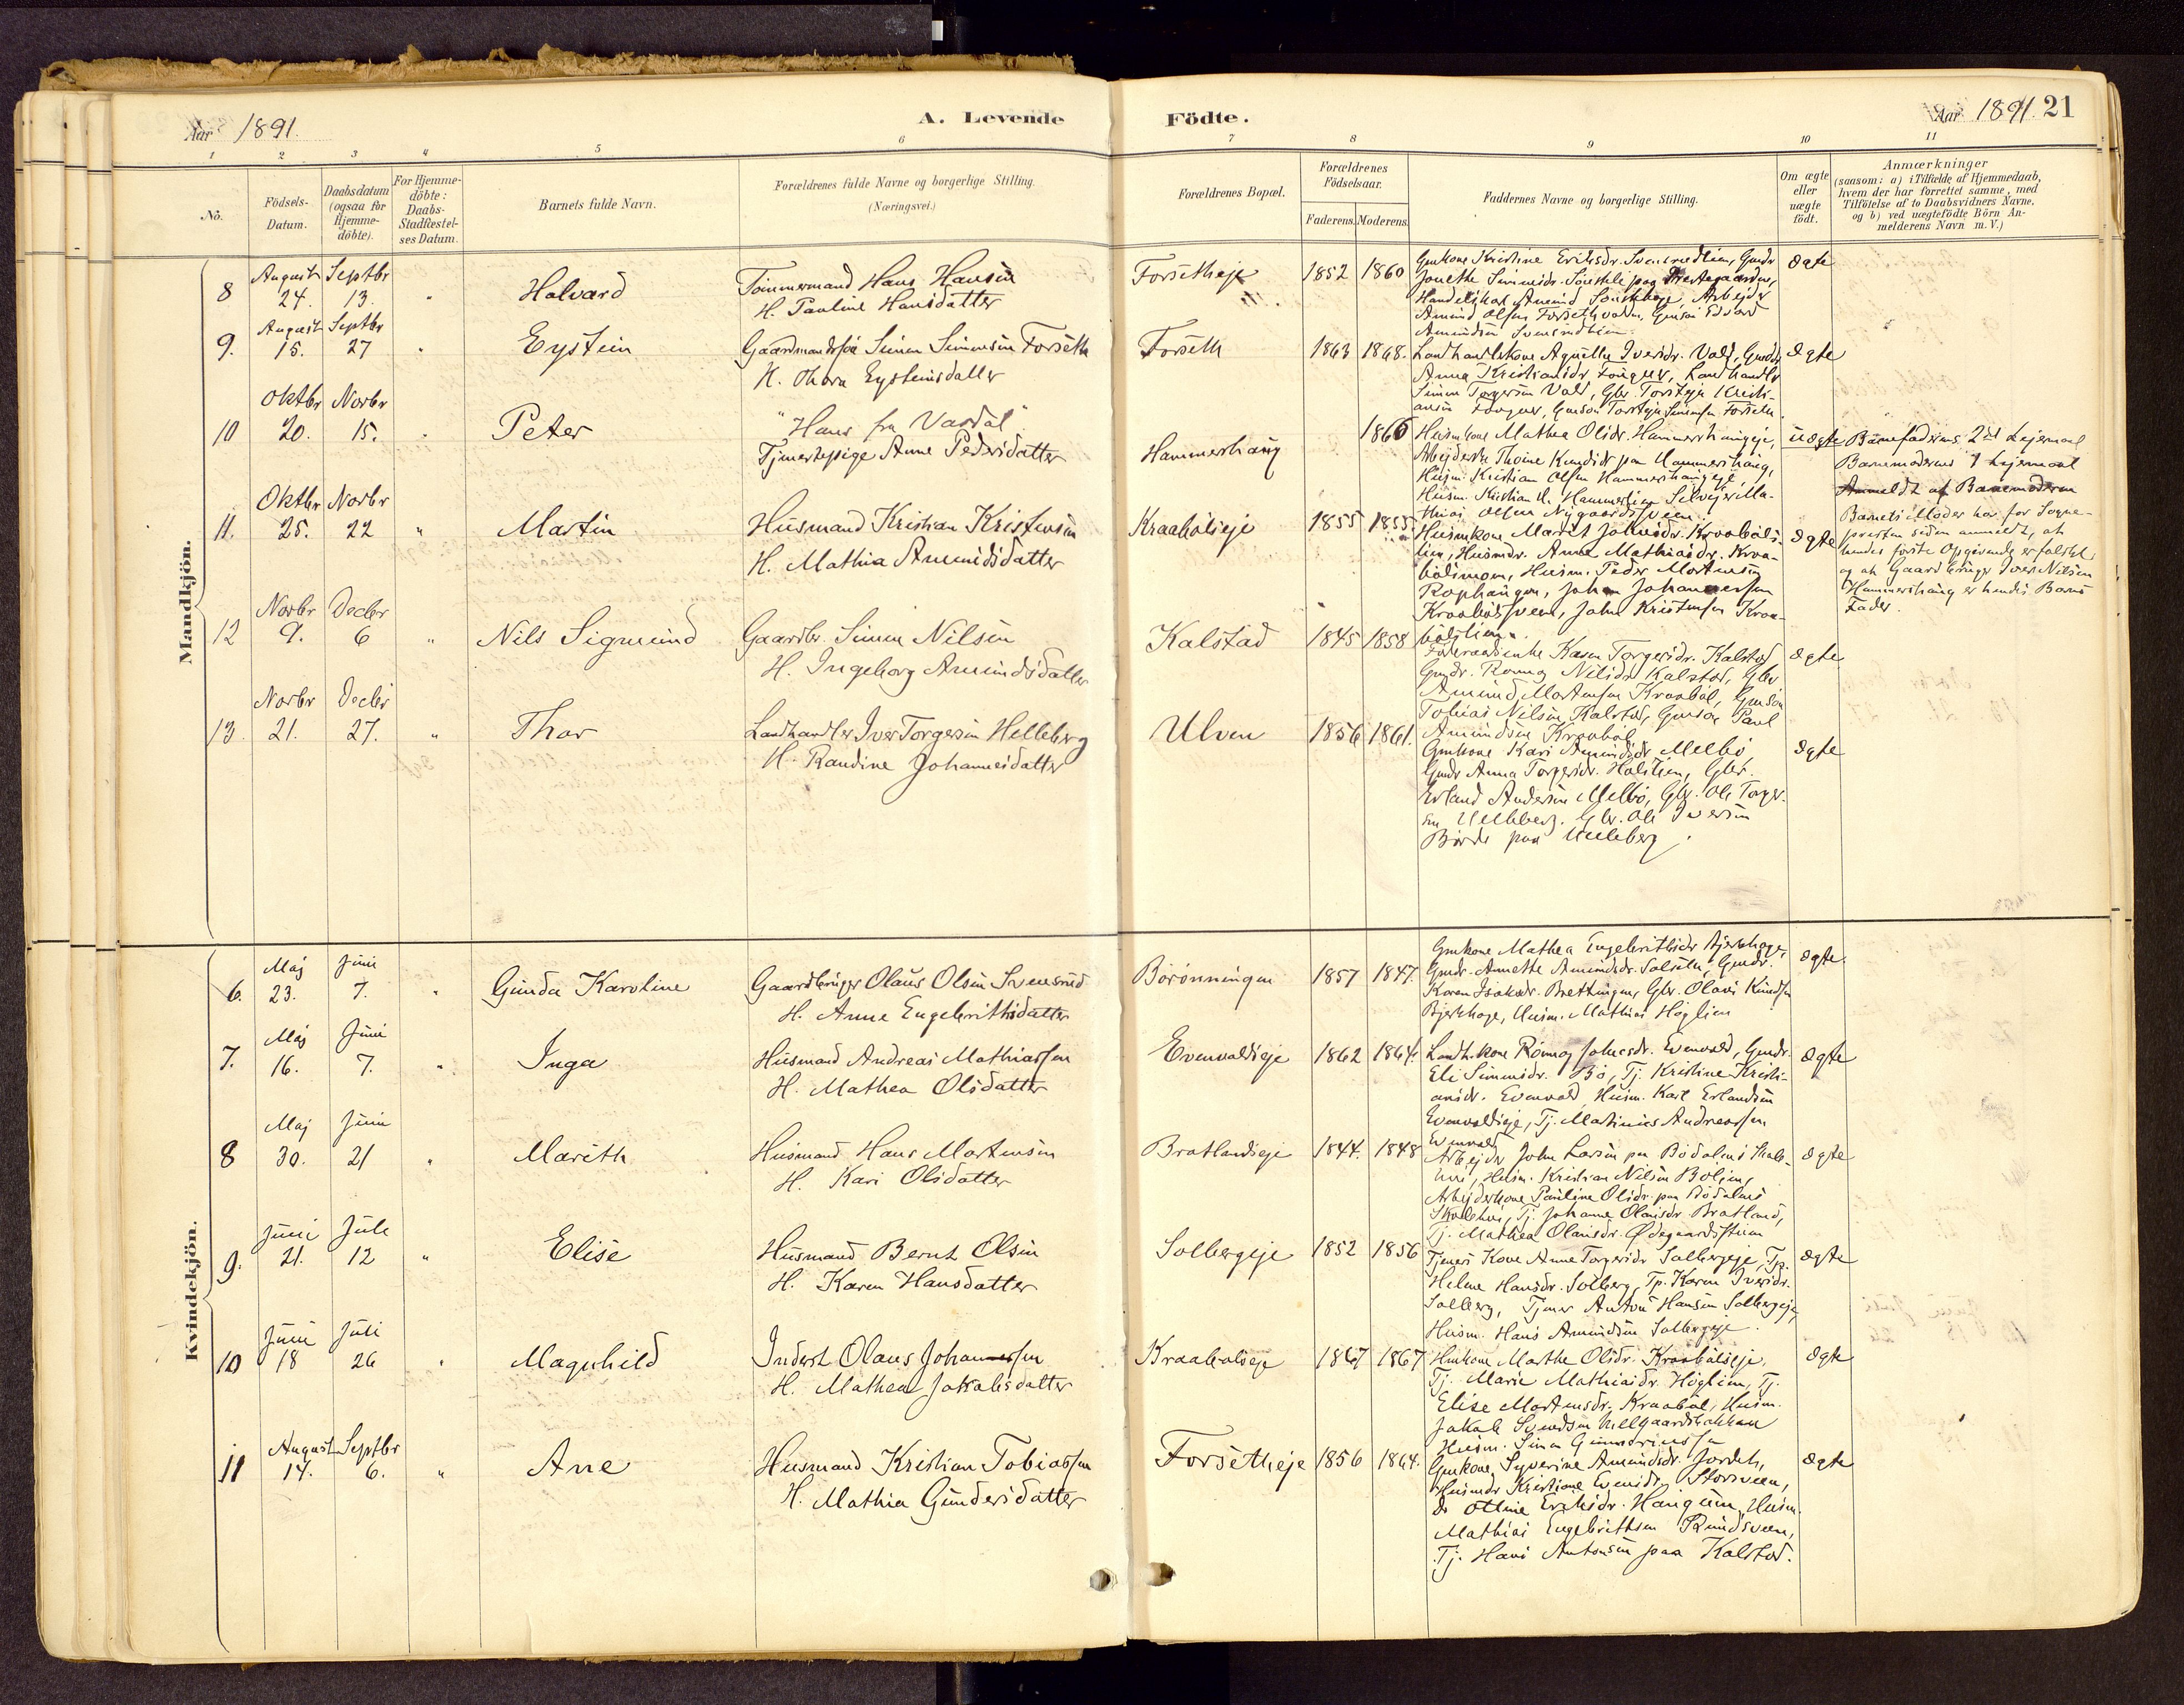 Aar 1891.
A. Levende
Födte.
Aar 1891. 21
1 2 3 4 5 6 7 8 9 10 11
No.
Födsels-Datum.
Daabsdatum (ogsaa for Hjemme-döbte).
For Hjemme-döbte: Daabs-Stadfæstel-ses Datum.
Barnets fulde Navn.
Forældrenes fulde Navne og borgerlige Stilling.
(Næringsvei.)
Forældrenes Bopæl.
Forældrenes Födselsaar.
Faderens. Moderens.
Faddernes Navne og borgerlige Stilling.
Om ægte eller uægte födt.
Anmærkninger
(saasom: a) i Tilfælde af Hjemmedaab,
hvem der har forrettet samme, med
Tilföielse af to Daabsvidners Navne,
og b) ved uægtefödte Börn An-
melderens Navn m.V.)
Mandkjön.
8 August 24. Septbr 13. " Halvard
Tømmermand Hans Hansen
H. Pauline Hansdatter
Forsetheje 1852 1860
Gmkone Kristine Eriksdr. Svensrudlien, Gmdr
ægte
9. August 15. Septbr 27 " Eystein
Gaardmandssøn Simen Simensen Forseth
H. Thora Eysteinsdatter
Forseth 1863 1868.
Landhandlskone Agnethe Iversdr. Vold, Gmdr
Anna Kristiansdr , Landhandler
Simen Torgersen Vold, Gbr. Torstein Kristi-
ansen , Gmsøn Simensen Forseth
ægte
10 Oktbr 20. Novbr 15. " Peter
"Hans fra Vardal"
Tjenestepige Anne Pedersdatter
Hammershaug 1866
Husmkone Mathea Olsdr. Hammershaugeje,
Husm. Kristian Olsen Hammershaugeje,
uægte
Barnefaderens 2det Lejermaal
Barnemoderens 1 Lejermaal
Anmeldt af Barnemoderen
Barnets Moder har for Sogne-
presten siden anmeldt, at
hendes første Opgivende er falskt
og at Gaardbruger Iver Nilsen
Hammershaug er hendes Barns
Fader.
11. Oktbr 25. Novbr 22 " Martin
Husmand Kristian Kristensen
H. Mathia Amundsdatter
Kraabølseje 1855 1855
Husmkone Marit Johnsdr. Kraabøls-
lien, Husmdr. Anne Mathiasdr. Kraa-
bølsmoen, Husm. Peder Mortensen
Rophaugen, Johan Johannessen
Kraabølsveen, John Kristensen Kraa-
bølslien.
ægte
12 Novbr 9. Decbr 6 " Nils Sigmund
Gaardbr. Simen Nilsen
H. Ingeborg Amundsdatter
Kalstad 1845 1858
Føderaadsenke Karen Torgersdr. Kalstad
Gmdr. Ronnog Nilsdr. Kalstad, Gbr
Amund Mortensen Kraabøl, Gmsøn
Tobias Nilsen Kalstad, Gmsøn Paul
Amundsen Kraabøl
ægte
13. Novbr 21. Decbr 27. " Thor
Landhandler Iver Torgersen Helleberg
H. Randine Johannesdatter
Ulven 1856 1861.
Gmkone Kari Amundsdr. Melbø
Gmdr Anna Torgersdr. Holslien, Gbr.
Erland Andersen Melbø, Gbr. Ole Torger-
sen Helleberg. Gbr. Ole Iversen
paa Helleberg.
ægte
Kvindekjön.
6. Maj 23. Juni 7. " Gunda Karoline
Gaardbruger Olaus Olsen Svensrud
H. Anne Engebrithsdatter
Børønningen 1857 1847.
Gmkone Mathea Engebrithsdr Bjerkhage,
Gmdr. Annethe Amundsdr. , Gmdr.
Karen Isaksdr. Brettingen, Gbr. Olaus Knudsen
Bjerkhage, Husm. Mathias Høglien
ægte
7. Maj 16. Juni 7. " Inga
Husmand Andreas Mathiassen
H. Mathea Olsdatter
Evenvoldseje 1862 1864.
Landh.kone Rønnog Johnsdr. Evenvold, Gmdr.
Eli Simensdr. Bø, Tj. Kristine Kristi-
ansdr. Evenvold, Husm. Karl Erlandsen
Evenvoldseje, Tj. Martinius Andreassen
Evenvold
ægte
8 Maj 30. Juni 21 " Marith
Husmand Hans Mortensen
H. Kari Olsdatter
Bratlandseje 1844. 1848
Arbejder John Larsen paa Bødalens Skole-
hus, Husm. Kristian Nilsen Bølien,
Arbejderkone Pauline Olsdr. paa Bødalens
Skolehus, Tj. Johanne Olausdr. Bratland,
Tj. Mathea Olausdr. Ødegaardsstuen
ægte
9. Juni 21. Juli 12 " Elise
Husmand Bernt Olsen
H. Karen Hansdatter
Solbergeje 1852 1856
Tjeners Kone Anne Torgersdr Solbergeje, Tp.
Helene Hansdr. Solberg, Tp. Karen Iversdr.
Solberg, Tjener Anton Hansen Solbergeje,
Husm. Hans Amundsen Solbergeje.
ægte
10 Juni 18 Juli 26 " Magnhild
Inderst Olaus Johannessen
H. Mathea Jakobsdatter
Kraabølseje 1867 1867
Huskone Marthe Olsdr. Kraabølseje,
Tj. Marie Mathiasdr. Høglien, Tj.
Elise Mortensdr. Kraabøl, Husm.
Jakob Svendsen
ægte
11 August 14. Septbr 6. " Ane
Husmand Kristian Tobiassen
H. Mathia Gundersdatter
Forsetheje 1856 1864.
Gmkone Syverine Amundsdr. Jordet,
Husmdr Kristiane Evensdr. Storsveen,
Do Otline Eriksdr. Haugum, Husm.
Mathias Engebrithsen Rundsveen,
Tj. Hans Antonsen paa Kalstad.
ægte